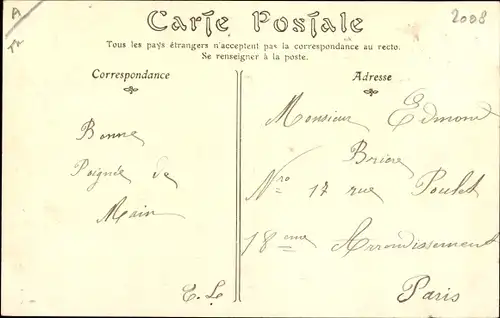 A
TR
2008
Carte Postale
Tous les pays étrangers n'acceptent pas la correspondance au recto.
Se renseigner à la poste.
Correspondance
Bonne
Poignée de
Main
E. L.
Adresse
Monsieur Edmond
Brière
Nro 17 rue Poulet
18eme Arrondissement
Paris